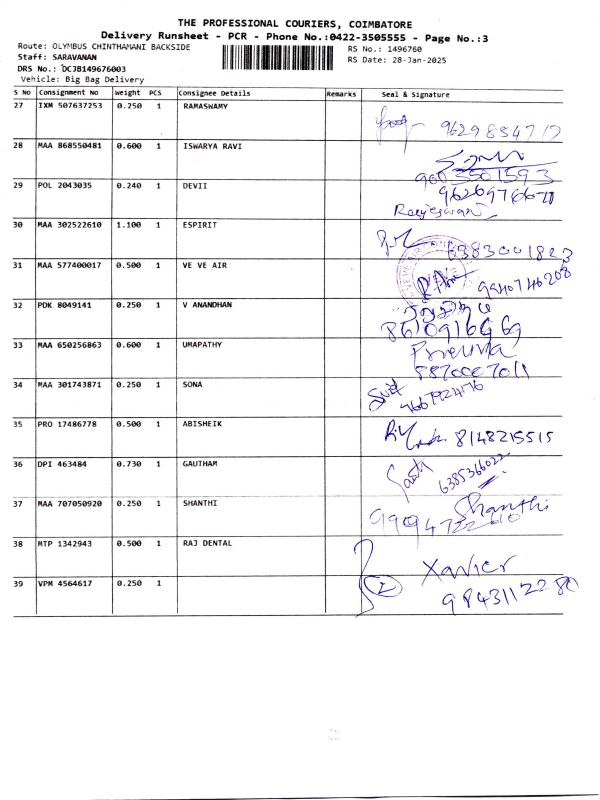 THE PROFESSIONAL COURIERS, COIMBATORE
Delivery Runsheet - PCR - Phone No.:0422-3505555 - Page No.:3
Route: OLYMBUS CHINTHAMANI BACKSIDE RS No.: 1496760
Staff: SARAVANAN RS Date: 28-Jan-2025
DRS No.: DCJB149676003
Vehicle: Big Bag Delivery
S No Consignment No Weight PCS Consignee Details Remarks Seal & Signature
27 IXM 507637253 0.250 1 RAMASWAMY
28 MAA 868550481 0.600 1 ISWARYA RAVI
9003501593
29 POL 2043035 0.240 1 DEVII
Rajeswari
30 MAA 302522610 1.100 1 ESPIRIT
6383001823
31 MAA 577400017 0.500 1 VE VE AIR
9940746208
32 PDK 8049141 0.250 1 V ANANDHAN
8610916969
33 MAA 650256863 0.600 1 UMAPATHY
Prerna
8870007011
34 MAA 301743871 0.250 1 SONA
7667924176
35 PRO 17486778 0.500 1 ABISHEIK
8148215515
36 DPI 463484 0.730 1 GAUTHAM
6385366022
37 MAA 707050920 0.250 1 SHANTHI
Shanthi
38 MTP 1342943 0.500 1 RAJ DENTAL
Xavier
39 VPM 4564617 0.250 1
9843112280